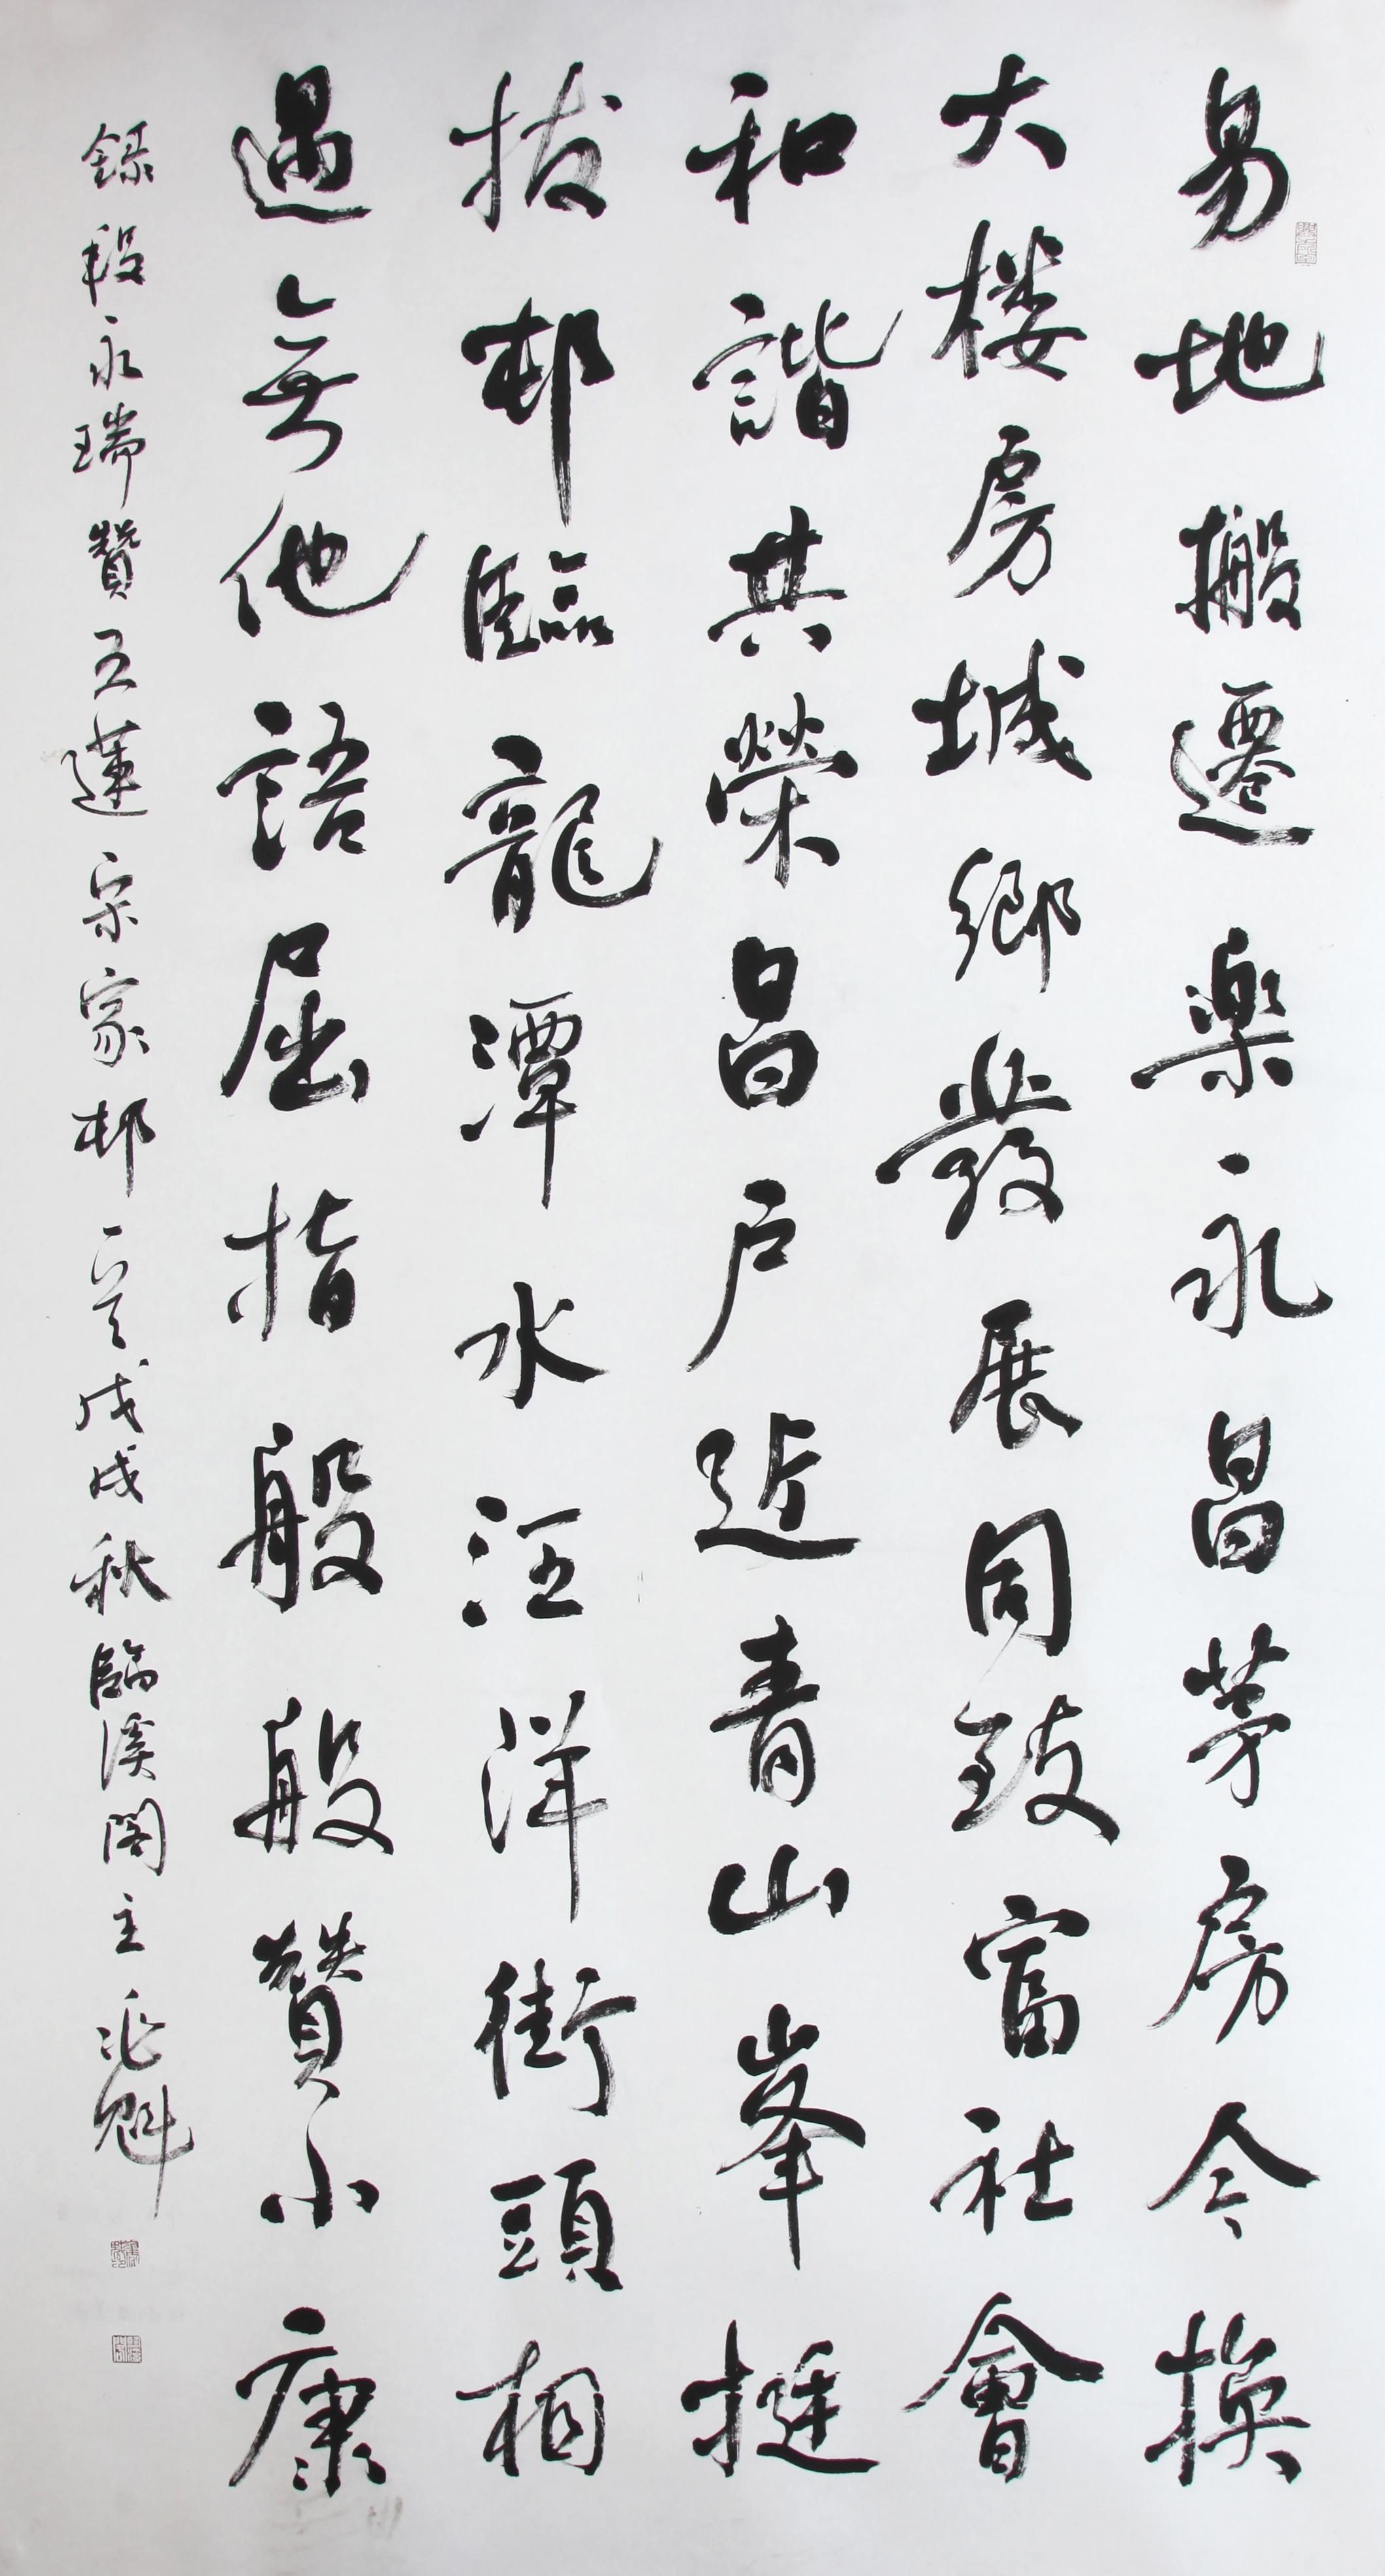 易地搬遷樂永昌茅房今換
大楼房城鄉發展同致富社會
和諧共榮昌戶迎青山峯挺
拔邨臨龍潭水汪洋街頭相
遇無他語屈指般般贊小康
錄段永瑞贊五蓮宋家邨一首戊戌秋臨溪閣主兆魁